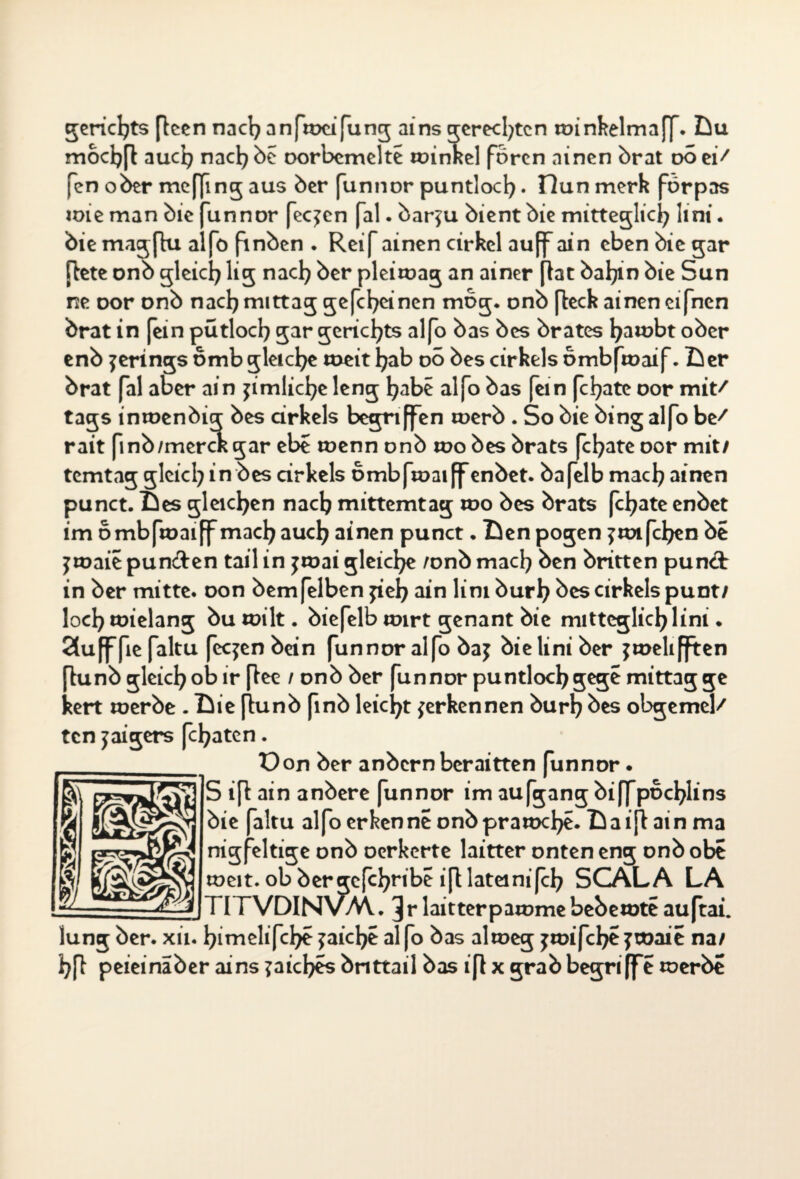 gerichts steen nach anſweiſung ains gerechten winkelmaſſ. Du
mȯchſt auch nach dē vorbemeltē winkel fȯrcn ainen drat vō ei/
ſen oder meſſing aus der ſunnor puntloch. Nun merk fȯrpas
wie man die ſunnor ſecʒen ſal. darʒu dient die mitteglich lini.
die magſtu alſo finden. Reiſ ainen cirkel auff ain eben die gar
ſtete vnd gleich lig nach der pleiwag an ainer ſtat dahin die Sun
ne vor vnd nach mittag geſcheinen mȯg. vnd ſteck ainen eiſnen
drat in ſein pútloch gar gerichts alſo das des drates hawbt oder
end ʒerings ȯmb gleiche weit hab vō des cirkels ȯmbſwaiſ. Der
drat ſal aber ain ʒimliche leng habē alſo das ſein ſchate vor mit/
tags inwendig des cirkels begriffen werd. So die ding alſo be/
rait ſind/merck gar ebē wenn vnd wo des drats ſchate vor mit/
temtag gleich in des cirkels ȯmbſwaiff endet. daſelb mach ainen
punct. Des gleichen nach mittemtag wo des drats ſchate endet
im ȯmbſwaiff mach auch ainen punct. Den pogen ʒwiſchen dē
ʒwaiē puncten tail in ʒwai gleiche /vnd mach den dritten punct
in der mitte. von demſelben ʒieh ain lini durh des cirkels punt/
loch wielang du wilt. dieſelb wirt genant die mitteglich lini.
Auff ſie ſaltu ſecʒen dein ſunnor alſo daʒ die lini der ʒwelifften
ſtund gleich ob ir ſtee / vnd der ſunnor puntloch gegē mittag ge
kert werde. Die ſtund ſind leicht ʒerkennen durh des obgemel/
ten ʒaigers ſchaten.
Von der andern beraitten ſunnor.
ES iſt ain andere ſunnor im aufgang diſſ pȯchlins
die ſaltu alſo erkennē vnd prawchē. Da iſt ain ma
nigfeltige vnd verkerte laitter vnten eng vnd obē
weit. ob der geſchribē iſt lateiniſch SCALA LA
TITVDINVM. Ir laitterpawme bedewtē auſtai.
lung der. xii. himeliſchē ʒaichē alſo das alweg ʒwiſchē ʒwaiē na/
hſt peieināder ains ʒaichēs drittail das iſt x grad begriffē werdē